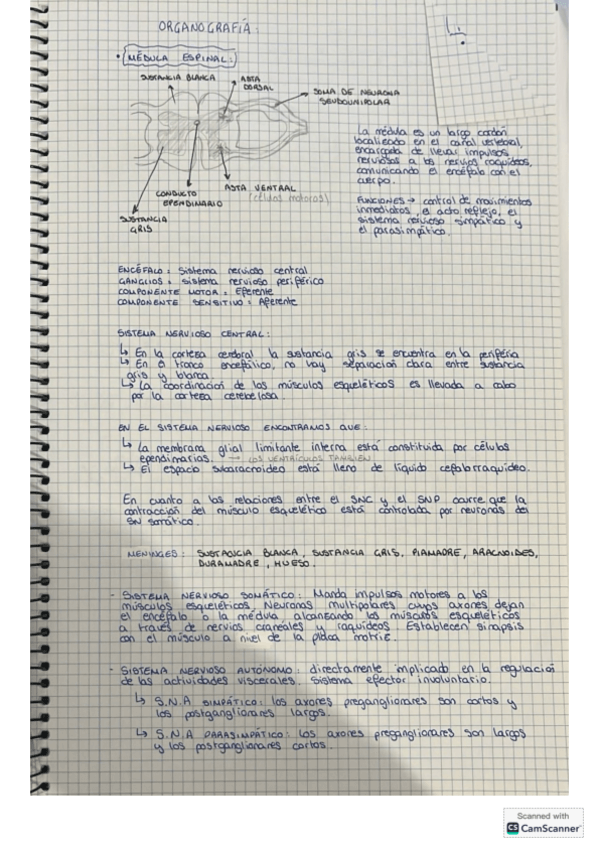 ORGANOGRAFÍA:
• MÉDULA ESPINAL:
SUSTANCIA BLANCA
ASTA
DORSAL
SOMA DE NEURONA
SEUDOUNIPOLAR
CONDUCTO
EPENDIMARIO
ASTA VENTRAL
(células motoras)
SUSTANCIA
GRIS
La médula es un largo cordón
localizado en el canal vertebral,
encargada de llevar impulsos
nerviosos a los nervios raquídeos,
comunicando el encéfalo con el
cuerpo.
FUNCIONES → control de movimientos
inmediatos, el acto reflejo, el
sistema nervioso simpático y
el parasimpático.
ENCÉFALO: Sistema nervioso central
GANGLIOS: sistema nervioso periférico
COMPONENTE MOTOR: Eferente
COMPONENTE SENSITIVO: Aferente
SISTEMA NERVIOSO CENTRAL:
↳ En la corteza cerebral la sustancia gris se encuentra en la periferia
↳ En el tronco encefálico, no hay separación clara entre sustancia
gris y blanca
↳ La coordinación de los músculos esqueléticos es llevada a cabo
por la corteza cerebelosa.
EN EL SISTEMA NERVIOSO ENCONTRAMOS QUE:
↳ La membrana glial limitante interna está constituida por células
ependimarias. → LOS VENTRÍCULOS TAMBIÉN
↳ El espacio subaracnoideo está lleno de líquido cefalorraquídeo.
En cuanto a las relaciones entre el SNC y el SNP ocurre que la
contracción del músculo esquelético está controlada por neuronas del
SN somático.
MENINGES: SUSTANCIA BLANCA, SUSTANCIA GRIS, PIAMADRE, ARACNOIDES,
DURAMADRE, HUESO.
- SISTEMA NERVIOSO SOMÁTICO: Manda impulsos motores a los
músculos esqueléticos. Neuronas multipolares cuyos axones dejan
el encéfalo o la médula alcanzando los músculos esqueléticos
a través de nervios craneales y raquídeos. Establecen sinapsis
con el músculo a nivel de la placa motriz.
- SISTEMA NERVIOSO AUTÓNOMO: directamente implicado en la regulación
de las actividades viscerales. Sistema efector involuntario.
↳ S.N.A SIMPÁTICO: los axones preganglionares son cortos y
los postganglionares largos.
↳ S.N.A PARASIMPÁTICO: los axones preganglionares son largos
y los postganglionares cortos.
Scanned with
CS CamScanner